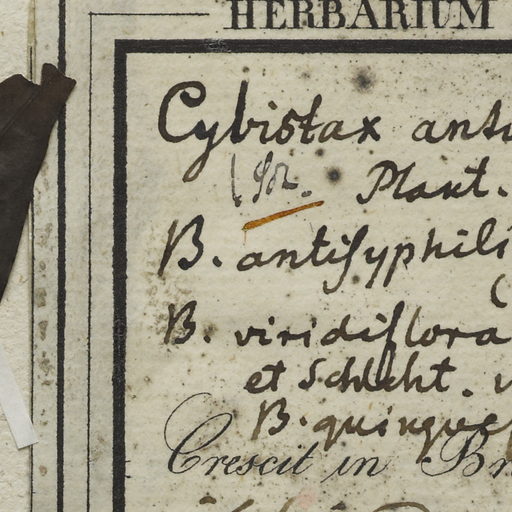 HERBARIUM
Cybistax anti
Plant.
B. antisyphili
B. viridiflora
et Schlcht.
B. quinque
Crescit in Br